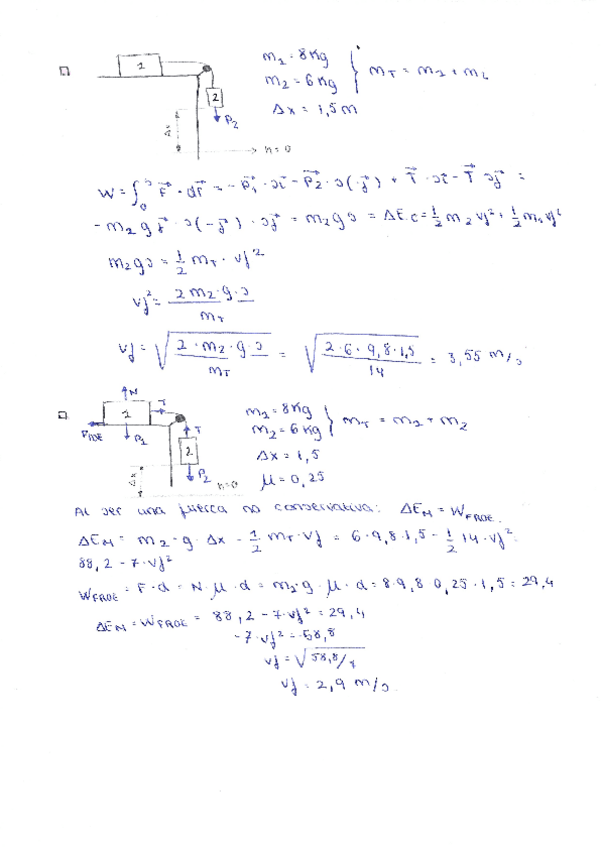 1
2
P₂
Δx
h=0
m₁ = 8Kg
m₂ = 6Kg } m_T = m₁ + m₂
Δx = 1,5m
W = ∫₀ˢ F⃗ · dr⃗ = -P⃗₁ · si⃗ - P⃗₂ · s(-j⃗) + T⃗ · si⃗ - T⃗ sj⃗ =
-m₂ g j⃗ · s(-j⃗) · sj⃗ = m₂gs = ΔE.c = 1/2 m₂ vf² + 1/2 m₁ vf²
m₂gs = 1/2 m_T · vf²
vf² = 2m₂·g·s / m_T
vf = √(2·m₂·g·s / m_T) = √(2·6·9,8·1,5 / 14) = 3,55 m/s
N
1
T
F_ROE
P₁
T
2
P₂
Δx
h=0
m₁ = 8Kg
m₂ = 6Kg } m_T = m₁ + m₂
Δx = 1,5
μ = 0,25
Al ser una fuerza no conservativa: ΔE_M = W_FROE.
ΔE_M = m₂·g·Δx - 1/2 m_T·vf = 6·9,8·1,5 - 1/2 14·vf²:
88,2 - 7·vf²
W_FROE = F·d = N·μ·d = m₁·g·μ·d = 8·9,8·0,25·1,5 = 29,4
ΔE_M = W_FROE = 88,2 - 7·vf² = 29,4
-7·vf² = -58,8
vf = √58,8/7
vf = 2,9 m/s.